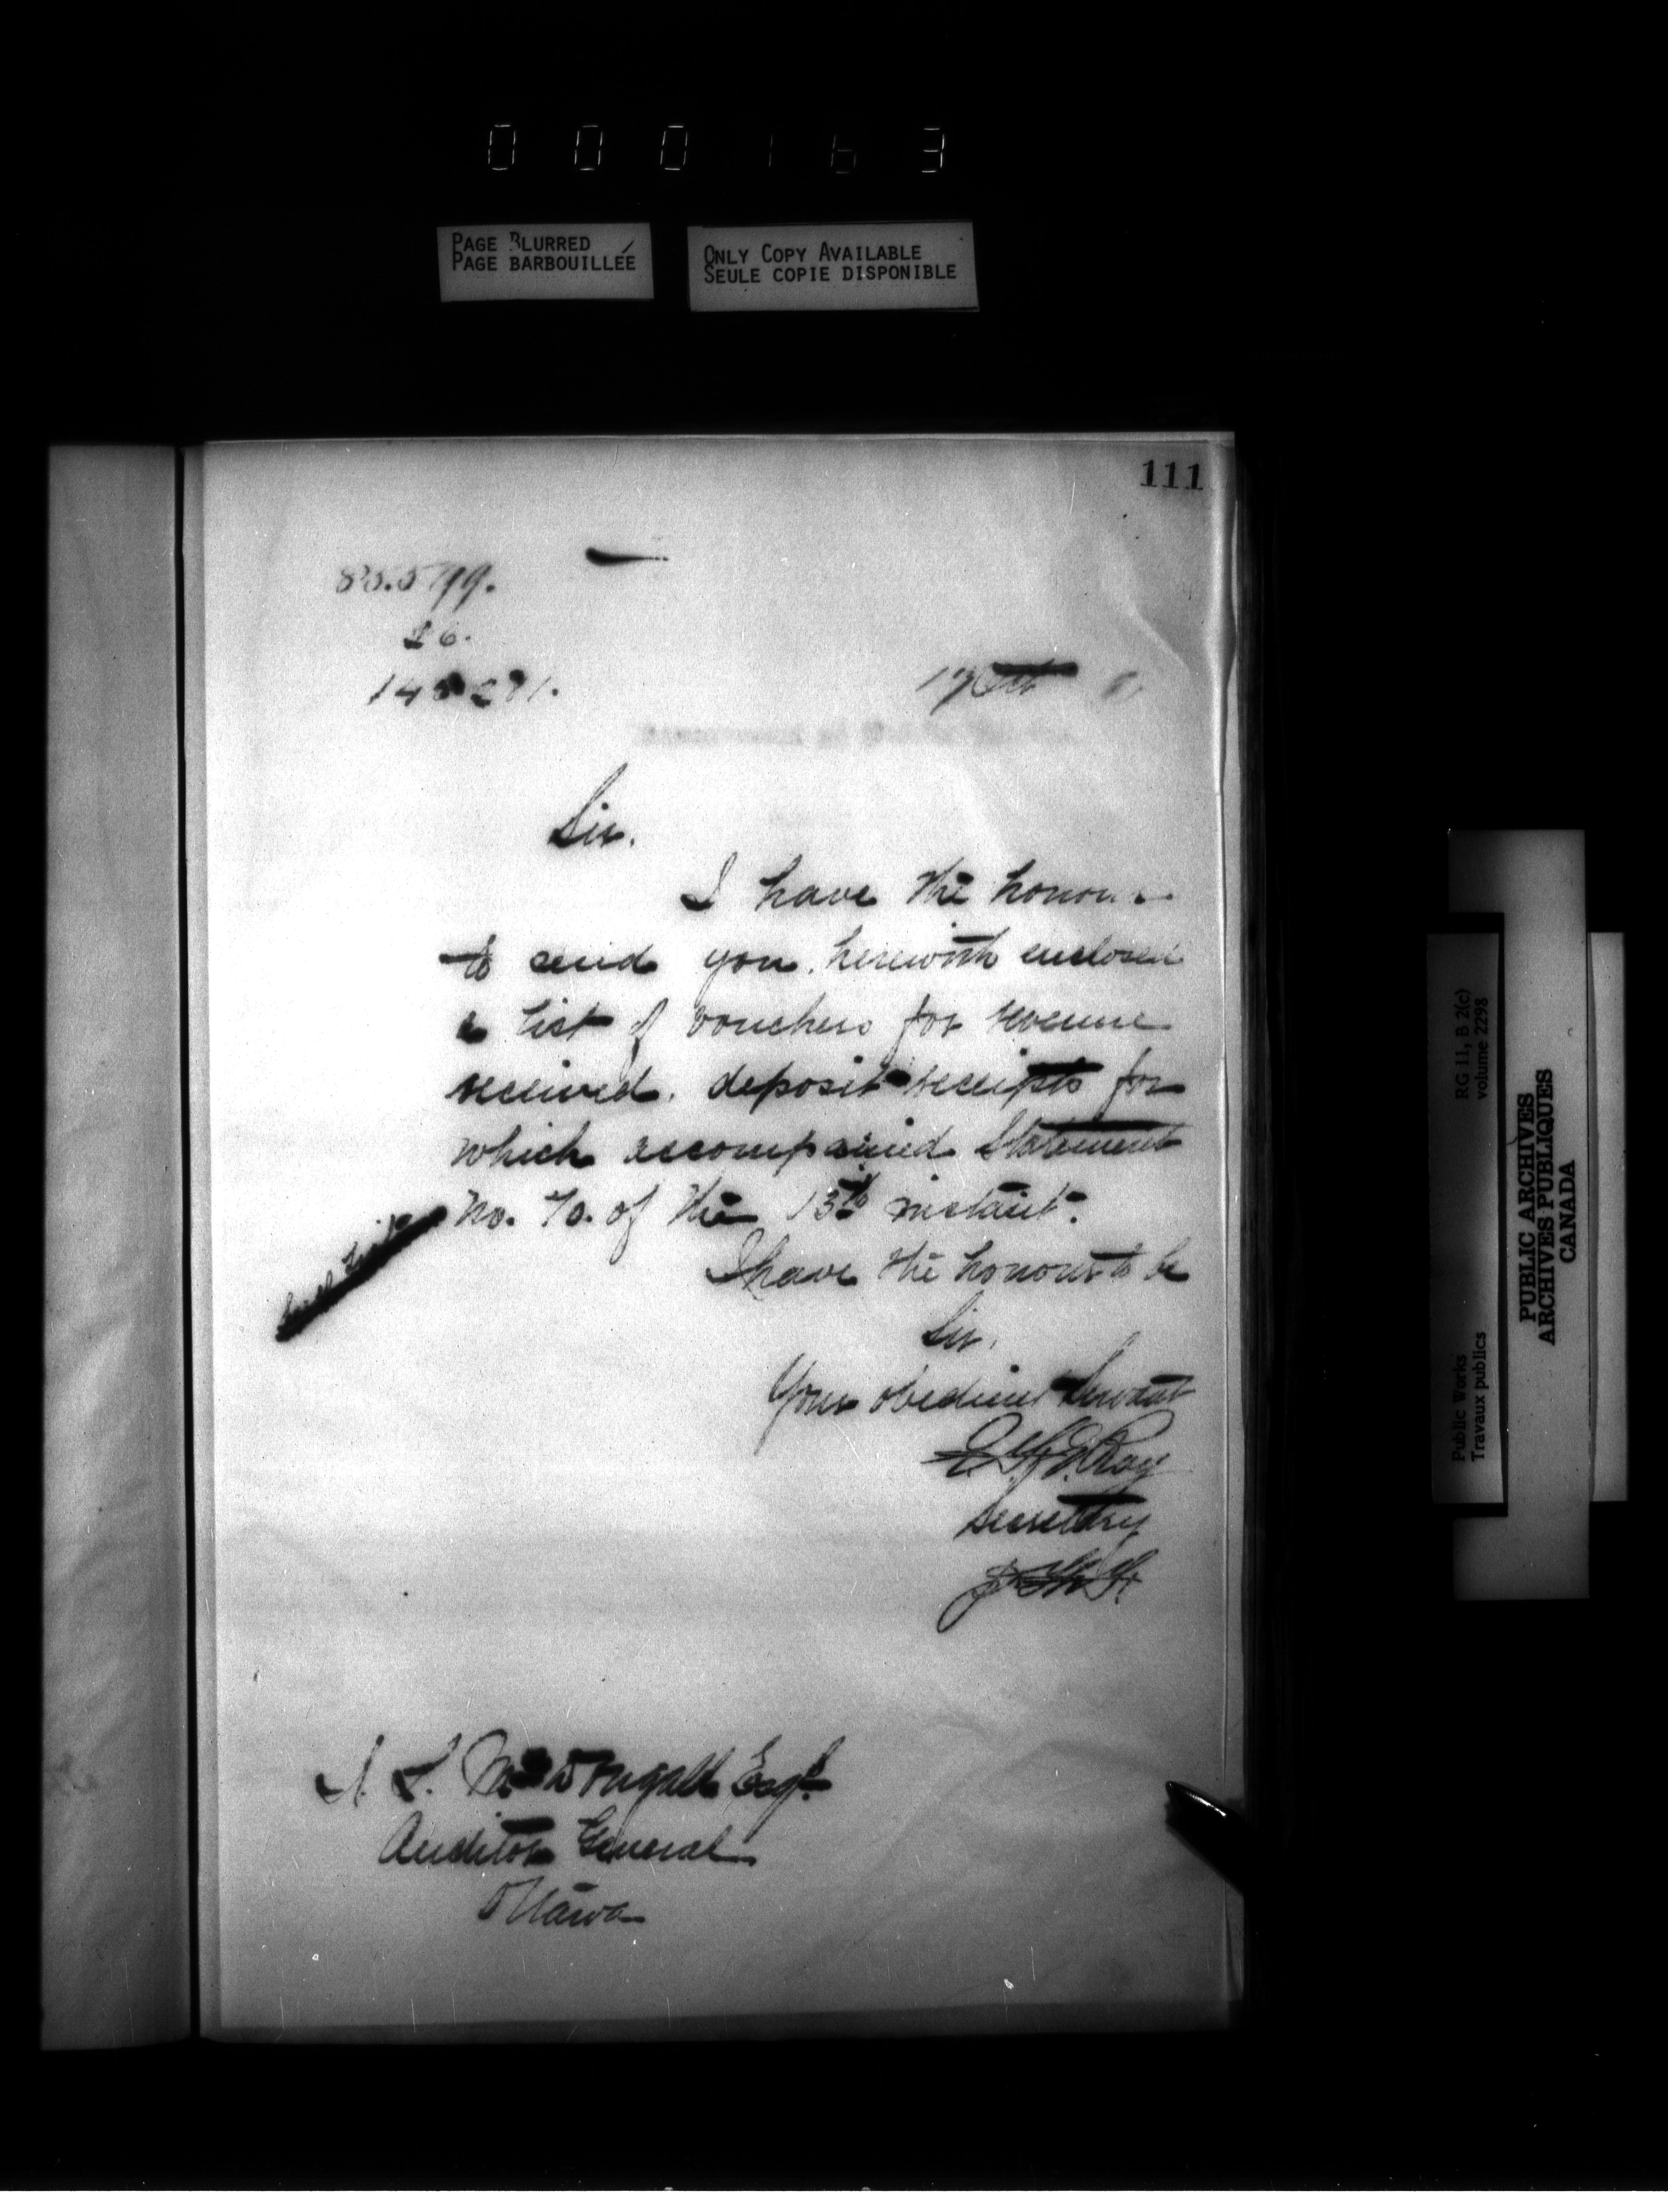 000163
PAGE BLURRED
PAGE BARBOUILLÉE
ONLY COPY AVAILABLE
SEULE COPIE DISPONIBLE
111
26.
17 Oct
Sir.
I have the honour
to send you, herewith enclosed
a list of vouchers for revenue
received, deposit receipts for
which accompanied Statement
No. 70. of the 13th instant.
I have the honour to be
Sir,
Your obedient Servant
E. F. E. Roy
Secretary
A. L. McDougall Esqr.
Auditor General
Ottawa
RG 11, B 2(c)
volume 2298
Public Works
Travaux publics
PUBLIC ARCHIVES
ARCHIVES PUBLIQUES
CANADA